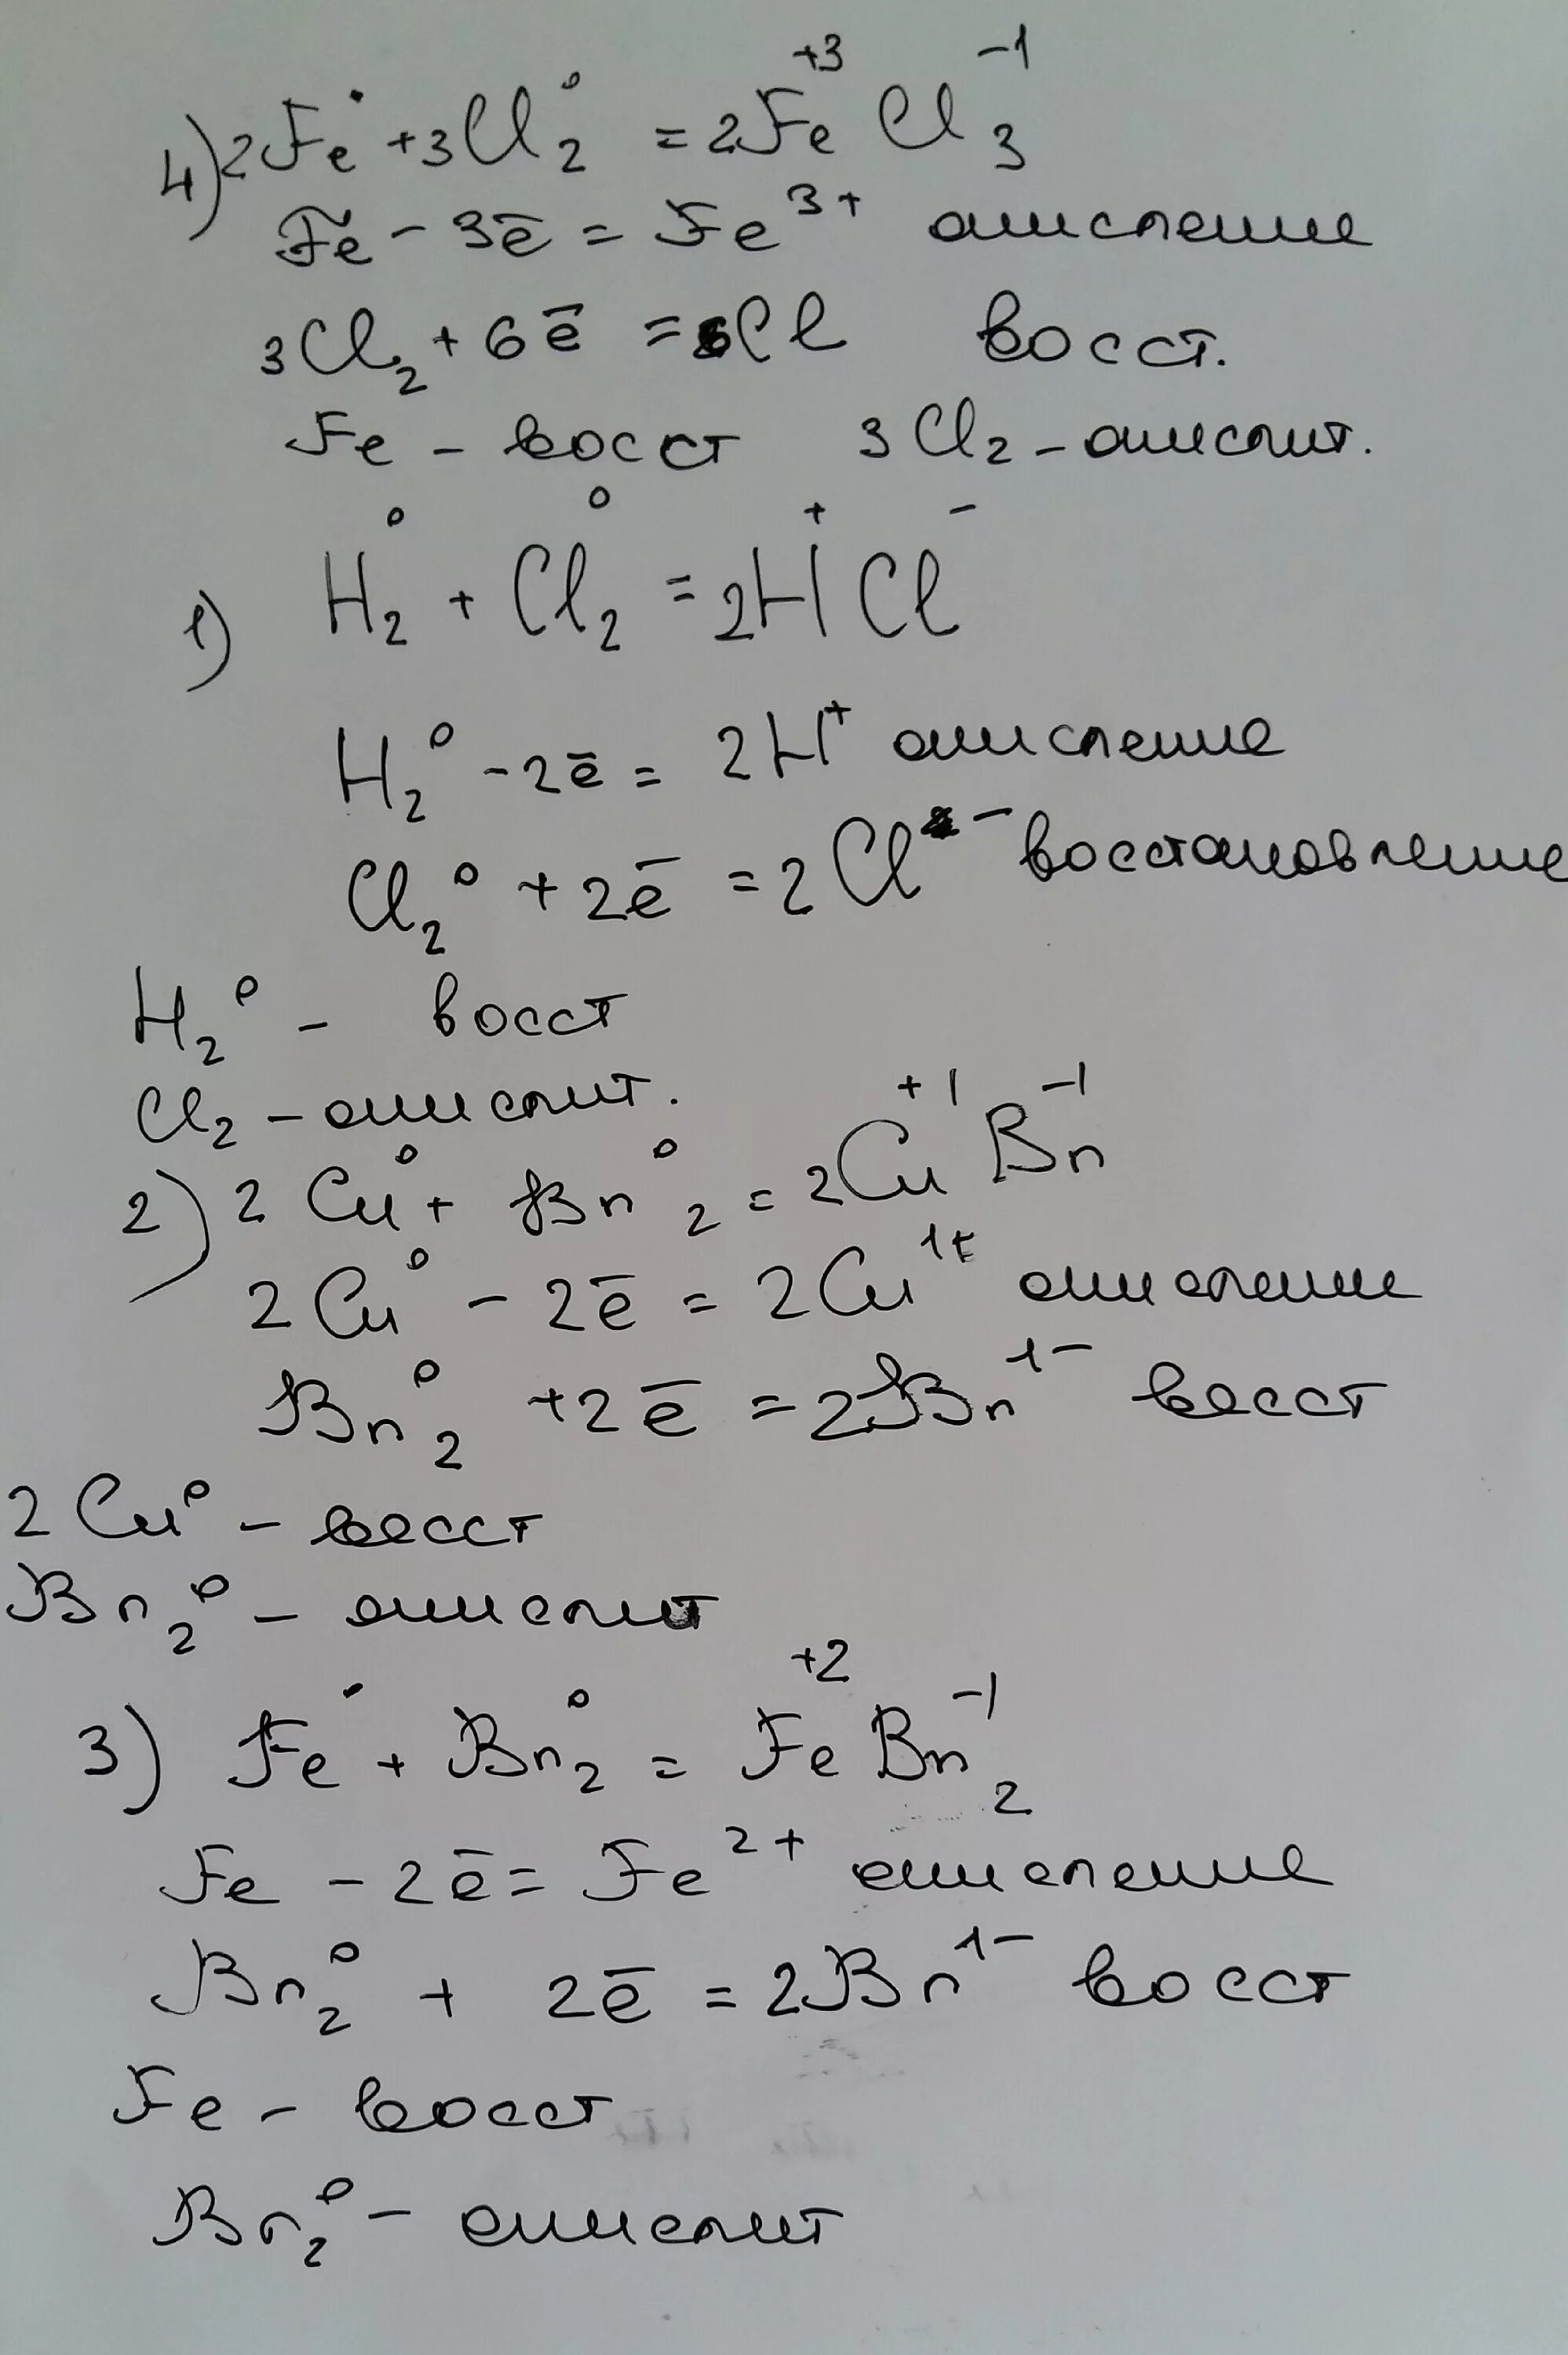 4) 2Fe⁰ + 3Cl₂⁰ = 2Fe⁺³Cl₃⁻¹
Fe - 3ē = Fe³⁺ окисление
3Cl₂ + 6ē = 6Cl восст.
Fe - восст 3Cl₂ - окислит.
1) H₂⁰ + Cl₂⁰ = 2H⁺Cl⁻
H₂⁰ - 2ē = 2H⁺ окисление
Cl₂⁰ + 2ē = 2Cl⁻ восстановление
H₂⁰ - восст
Cl₂ - окислит.
2) 2Cu⁰ + Br₂⁰ = 2Cu⁺¹Br⁻¹
2Cu⁰ - 2ē = 2Cu¹⁺ окисление
Br₂⁰ + 2ē = 2Br¹⁻ восст
2Cu⁰ - восст
Br₂⁰ - окислит
3) Fe⁰ + Br₂⁰ = Fe⁺²Br₂⁻¹
Fe - 2ē = Fe²⁺ окисление
Br₂⁰ + 2ē = 2Br¹⁻ восст
Fe - восст
Br₂⁰ - окислит